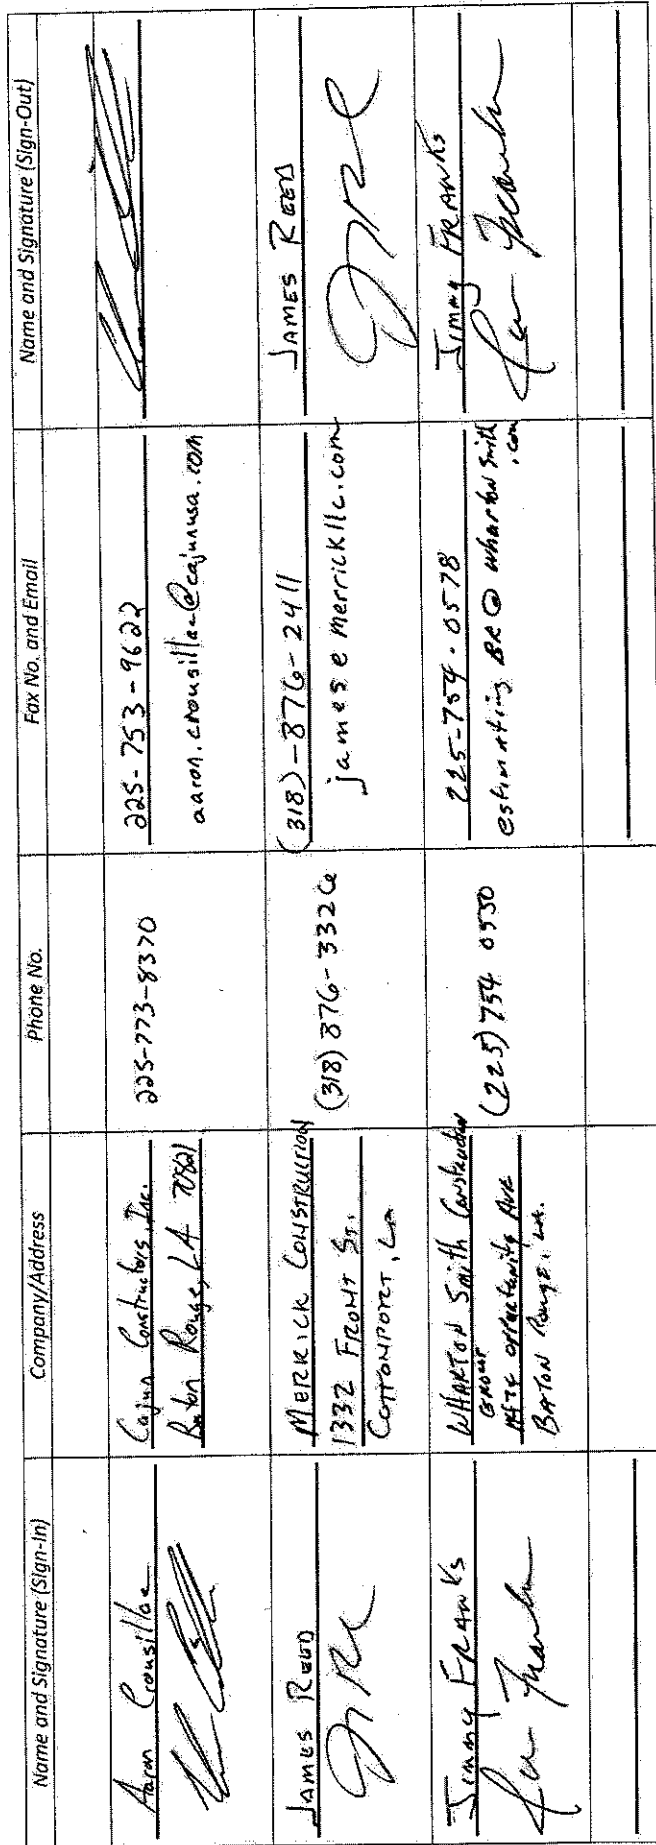 Name and Signature (Sign-In)
Company/Address
Phone No.
Fax No. and Email
Name and Signature (Sign-Out)
Aaron Crousillac
Cajun Constructors, Inc.
Baton Rouge, LA 70821
225-773-8370
225-753-9622
aaron.crousillac@cajunusa.com
JAMES REED
MERRICK CONSTRUCTION
1332 FRONT ST.
COTTONPORT, La
(318) 876-3326
(318)-876-2411
james@merrickllc.com
JAMES REED
Jimmy FRANKS
WHARTON Smith Construction
GROUP
opportunity AVE
BATON Rouge, LA.
(225) 754 0550
225-754-0578
estimating BR @ whartonsmith
.com
Jimmy FRANKS